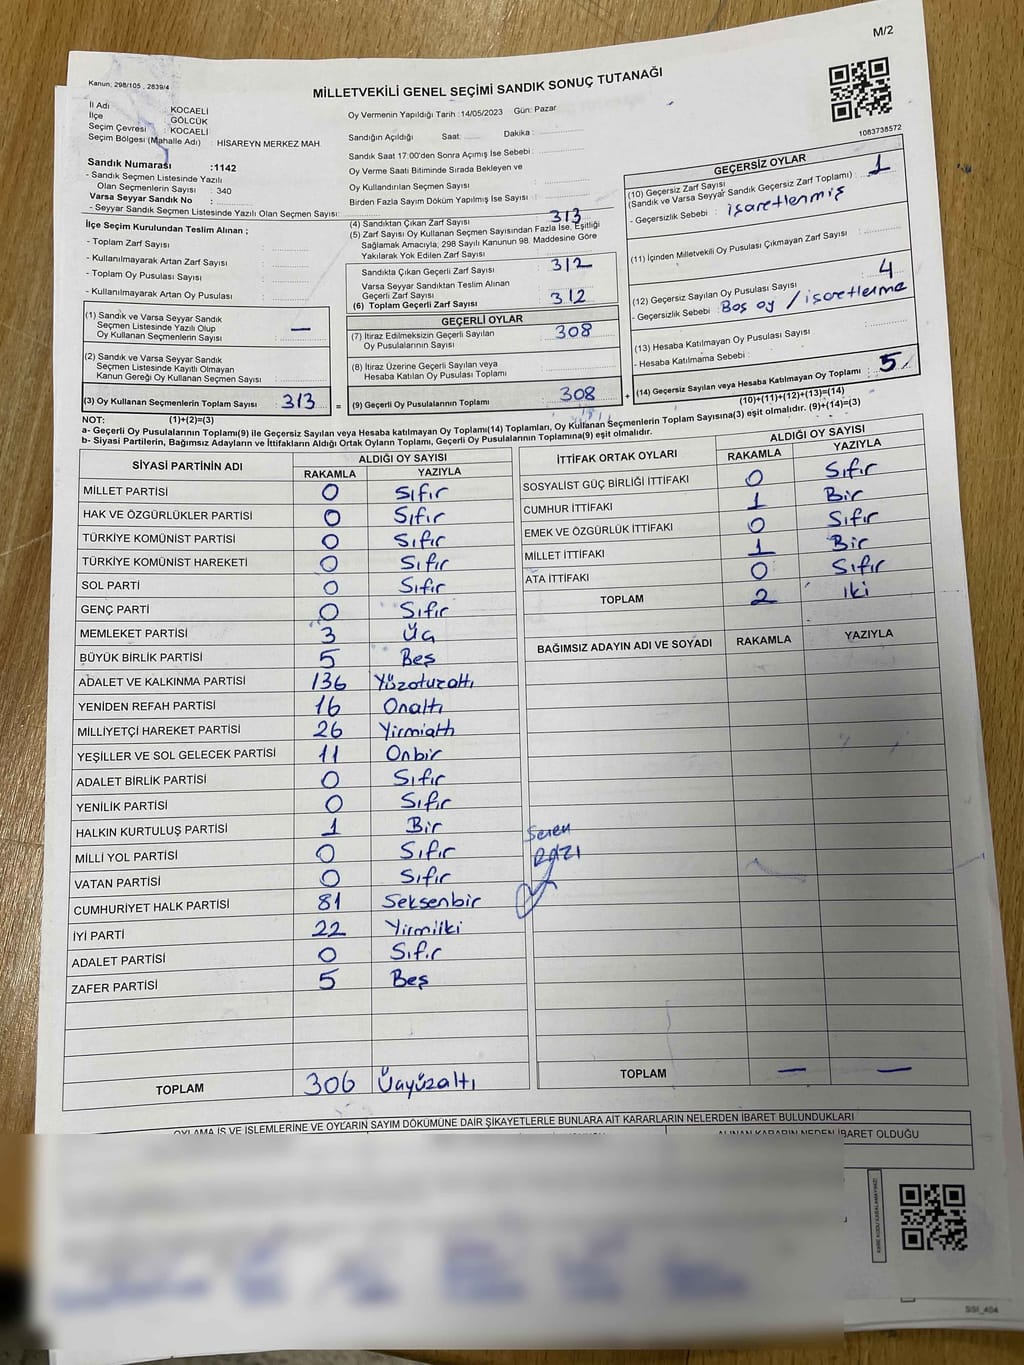 M/2
Kanun, 298/105 , 2839/4
MİLLETVEKİLİ GENEL SEÇİMİ SANDIK SONUÇ TUTANAĞI
1083738572
İl Adı : KOCAELİ
İlçe : GÖLCÜK
Seçim Çevresi : KOCAELİ
Seçim Bölgesi (Mahalle Adı) : HİSAREYN MERKEZ MAH.
Sandık Numarası :1142
- Sandık Seçmen Listesinde Yazılı
Olan Seçmenlerin Sayısı : 340
Varsa Seyyar Sandık No :
- Seyyar Sandık Seçmen Listesinde Yazılı Olan Seçmen Sayısı:
Oy Vermenin Yapıldığı Tarih :14/05/2023 Gün: Pazar
Sandığın Açıldığı Saat: Dakika :
Sandık Saat 17:00'den Sonra Açımış İse Sebebi :
Oy Verme Saati Bitiminde Sırada Bekleyen ve
Oy Kullandırılan Seçmen Sayısı :
Birden Fazla Sayım Döküm Yapılmış İse Sayısı :
İlçe Seçim Kurulundan Teslim Alınan ;
- Toplam Zarf Sayısı :
- Kullanılmayarak Artan Zarf Sayısı :
- Toplam Oy Pusulası Sayısı :
- Kullanılmayarak Artan Oy Pusulası :
(1) Sandık ve Varsa Seyyar Sandık
Seçmen Listesinde Yazılı Olup
Oy Kullanan Seçmenlerin Sayısı : —
(2) Sandık ve Varsa Seyyar Sandık
Seçmen Listesinde Kayıtlı Olmayan
Kanun Gereği Oy Kullanan Seçmen Sayısı :
(3) Oy Kullanan Seçmenlerin Toplam Sayısı : 313
(1)+(2)=(3)
(4) Sandıktan Çıkan Zarf Sayısı : 313
(5) Zarf Sayısı Oy Kullanan Seçmen Sayısından Fazla İse, Eşitliği
Sağlamak Amacıyla, 298 Sayılı Kanunun 98. Maddesine Göre
Yakılarak Yok Edilen Zarf Sayısı :
Sandıkta Çıkan Geçerli Zarf Sayısı : 312
Varsa Seyyar Sandıktan Teslim Alınan
Geçerli Zarf Sayısı :
(6) Toplam Geçerli Zarf Sayısı : 312
GEÇERLİ OYLAR
(7) İtiraz Edilmeksizin Geçerli Sayılan
Oy Pusulalarının Sayısı : 308
(8) İtiraz Üzerine Geçerli Sayılan veya
Hesaba Katılan Oy Pusulası Toplamı :
= (9) Geçerli Oy Pusulalarının Toplamı : 308
GEÇERSİZ OYLAR
(10) Geçersiz Zarf Sayısı
(Sandık ve Varsa Seyyar Sandık Geçersiz Zarf Toplamı) : 1
- Geçersizlik Sebebi : işaretlenmiş
(11) İçinden Milletvekili Oy Pusulası Çıkmayan Zarf Sayısı :
(12) Geçersiz Sayılan Oy Pusulası Sayısı : 4
- Geçersizlik Sebebi : Boş oy / işaretlenme
(13) Hesaba Katılmayan Oy Pusulası Sayısı :
- Hesaba Katılmama Sebebi :
+ (14) Geçersiz Sayılan veya Hesaba Katılmayan Oy Toplamı : 5
(10)+(11)+(12)+(13)=(14)
NOT:
a- Geçerli Oy Pusulalarının Toplamı(9) ile Geçersiz Sayılan veya Hesaba katılmayan Oy Toplamı(14) Toplamları, Oy Kullanan Seçmenlerin Toplam Sayısına(3) eşit olmalıdır. (9)+(14)=(3)
b- Siyasi Partilerin, Bağımsız Adayların ve İttifakların Aldığı Ortak Oyların Toplamı, Geçerli Oy Pusulalarının Toplamına(9) eşit olmalıdır.
SİYASİ PARTİNİN ADI ALDIĞI OY SAYISI
RAKAMLA YAZIYLA
MİLLET PARTİSİ 0 Sıfır
HAK VE ÖZGÜRLÜKLER PARTİSİ 0 Sıfır
TÜRKİYE KOMÜNİST PARTİSİ 0 Sıfır
TÜRKİYE KOMÜNİST HAREKETİ 0 Sıfır
SOL PARTİ 0 Sıfır
GENÇ PARTİ 0 Sıfır
MEMLEKET PARTİSİ 3 Üç
BÜYÜK BİRLİK PARTİSİ 5 Beş
ADALET VE KALKINMA PARTİSİ 136 Yüzotuzaltı
YENİDEN REFAH PARTİSİ 16 Onaltı
MİLLİYETÇİ HAREKET PARTİSİ 26 Yirmialtı
YEŞİLLER VE SOL GELECEK PARTİSİ 11 Onbir
ADALET BİRLİK PARTİSİ 0 Sıfır
YENİLİK PARTİSİ 0 Sıfır
HALKIN KURTULUŞ PARTİSİ 1 Bir
MİLLİ YOL PARTİSİ 0 Sıfır
VATAN PARTİSİ 0 Sıfır
CUMHURİYET HALK PARTİSİ 81 Seksenbir
İYİ PARTİ 22 Yirmiiki
ADALET PARTİSİ 0 Sıfır
ZAFER PARTİSİ 5 Beş
TOPLAM 306 Üçyüzaltı
İTTİFAK ORTAK OYLARI ALDIĞI OY SAYISI
RAKAMLA YAZIYLA
SOSYALİST GÜÇ BİRLİĞİ İTTİFAKI 0 Sıfır
CUMHUR İTTİFAKI 1 Bir
EMEK VE ÖZGÜRLÜK İTTİFAKI 0 Sıfır
MİLLET İTTİFAKI 1 Bir
ATA İTTİFAKI 0 Sıfır
TOPLAM 2 iki
BAĞIMSIZ ADAYIN ADI VE SOYADI RAKAMLA YAZIYLA
Seren
TOPLAM — —
OYLAMA İŞ VE İŞLEMLERİNE VE OYLARIN SAYIM DÖKÜMÜNE DAİR ŞİKAYETLERLE BUNLARA AİT KARARLARIN NELERDEN İBARET BULUNDUKLARI
ALINAN KARARIN NEDEN İBARET OLDUĞU
SSI_404